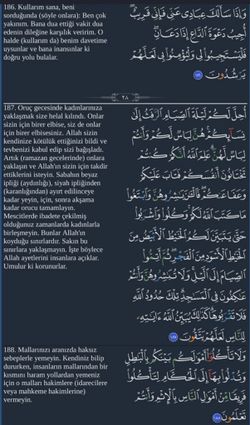 186. Kullarım sana, beni
sorduğunda (söyle onlara): Ben çok
yakınım. Bana dua ettiği vakit dua
edenin dileğine karşılık veririm. O
halde (kullarım da) benim davetime
uysunlar ve bana inansınlar ki
doğru yolu bulalar.
وَإِذَا سَأَلَكَ عِبَادِي عَنِّي فَإِنِّي قَرِيبٌ
أُجِيبُ دَعْوَةَ الدَّاعِ إِذَا دَعَانِ
فَلْيَسْتَجِيبُوا لِي وَلْيُؤْمِنُوا بِي لَعَلَّهُمْ
يَرْشُدُونَ ١٨٦
٢٨
187. Oruç gecesinde kadınlarınıza
yaklaşmak size helal kılındı. Onlar
sizin için birer elbise, siz de onlar
için birer elbisesiniz. Allah sizin
kendinize kötülük ettiğinizi bildi ve
tevbenizi kabul edip sizi bağışladı.
Artık (ramazan gecelerinde) onlara
yaklaşın ve Allah'ın sizin için takdir
ettiklerini isteyin. Sabahın beyaz
ipliği (aydınlığı), siyah ipliğinden
(karanlığından) ayırt edilinceye
kadar yeyin, için, sonra akşama
kadar orucu tamamlayın.
Mescitlerde ibadete çekilmiş
olduğunuz zamanlarda kadınlarla
birleşmeyin. Bunlar Allah'ın
koyduğu sınırlardır. Sakın bu
sınırlara yaklaşmayın. İşte böylece
Allah ayetlerini insanlara açıklar.
Umulur ki korunurlar.
أُحِلَّ لَكُمْ لَيْلَةَ الصِّيَامِ الرَّفَثُ إِلَى
نِسَائِكُمْ هُنَّ لِبَاسٌ لَكُمْ وَأَنْتُمْ
لِبَاسٌ لَهُنَّ عَلِمَ اللَّهُ أَنَّكُمْ كُنْتُمْ
تَخْتَانُونَ أَنْفُسَكُمْ فَتَابَ عَلَيْكُمْ
وَعَفَا عَنْكُمْ فَالْآنَ بَاشِرُوهُنَّ وَابْتَغُوا
مَا كَتَبَ اللَّهُ لَكُمْ وَكُلُوا وَاشْرَبُوا
حَتَّى يَتَبَيَّنَ لَكُمُ الْخَيْطُ الْأَبْيَضُ مِنَ
الْخَيْطِ الْأَسْوَدِ مِنَ الْفَجْرِ ثُمَّ أَتِمُّوا
الصِّيَامَ إِلَى اللَّيْلِ وَلَا تُبَاشِرُوهُنَّ وَأَنْتُمْ
عَاكِفُونَ فِي الْمَسَاجِدِ تِلْكَ حُدُودُ اللَّهِ
فَلَا تَقْرَبُوهَا كَذَلِكَ يُبَيِّنُ اللَّهُ آيَاتِهِ
لِلنَّاسِ لَعَلَّهُمْ يَتَّقُونَ ١٨٧
188. Mallarınızı aranızda haksız
sebeplerle yemeyin. Kendiniz bilip
dururken, insanların mallarından bir
kısmını haram yollardan yemeniz
için o malları hakimlere (idarecilere
veya mahkeme hakimlerine)
vermeyin.
وَلَا تَأْكُلُوا أَمْوَالَكُمْ بَيْنَكُمْ بِالْبَاطِلِ
وَتُدْلُوا بِهَا إِلَى الْحُكَّامِ لِتَأْكُلُوا
فَرِيقًا مِنْ أَمْوَالِ النَّاسِ بِالْإِثْمِ وَأَنْتُمْ
تَعْلَمُونَ ١٨٨